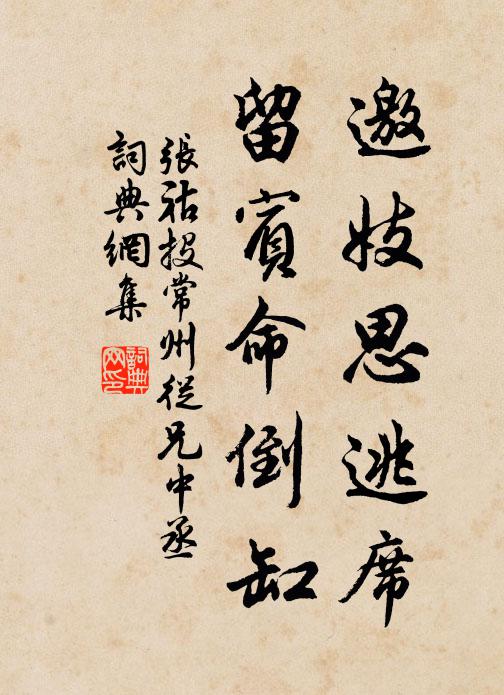 邀妓思逃席
留賓命倒缸
張祜投常州從兄中丞
詞典網集
詞典網印